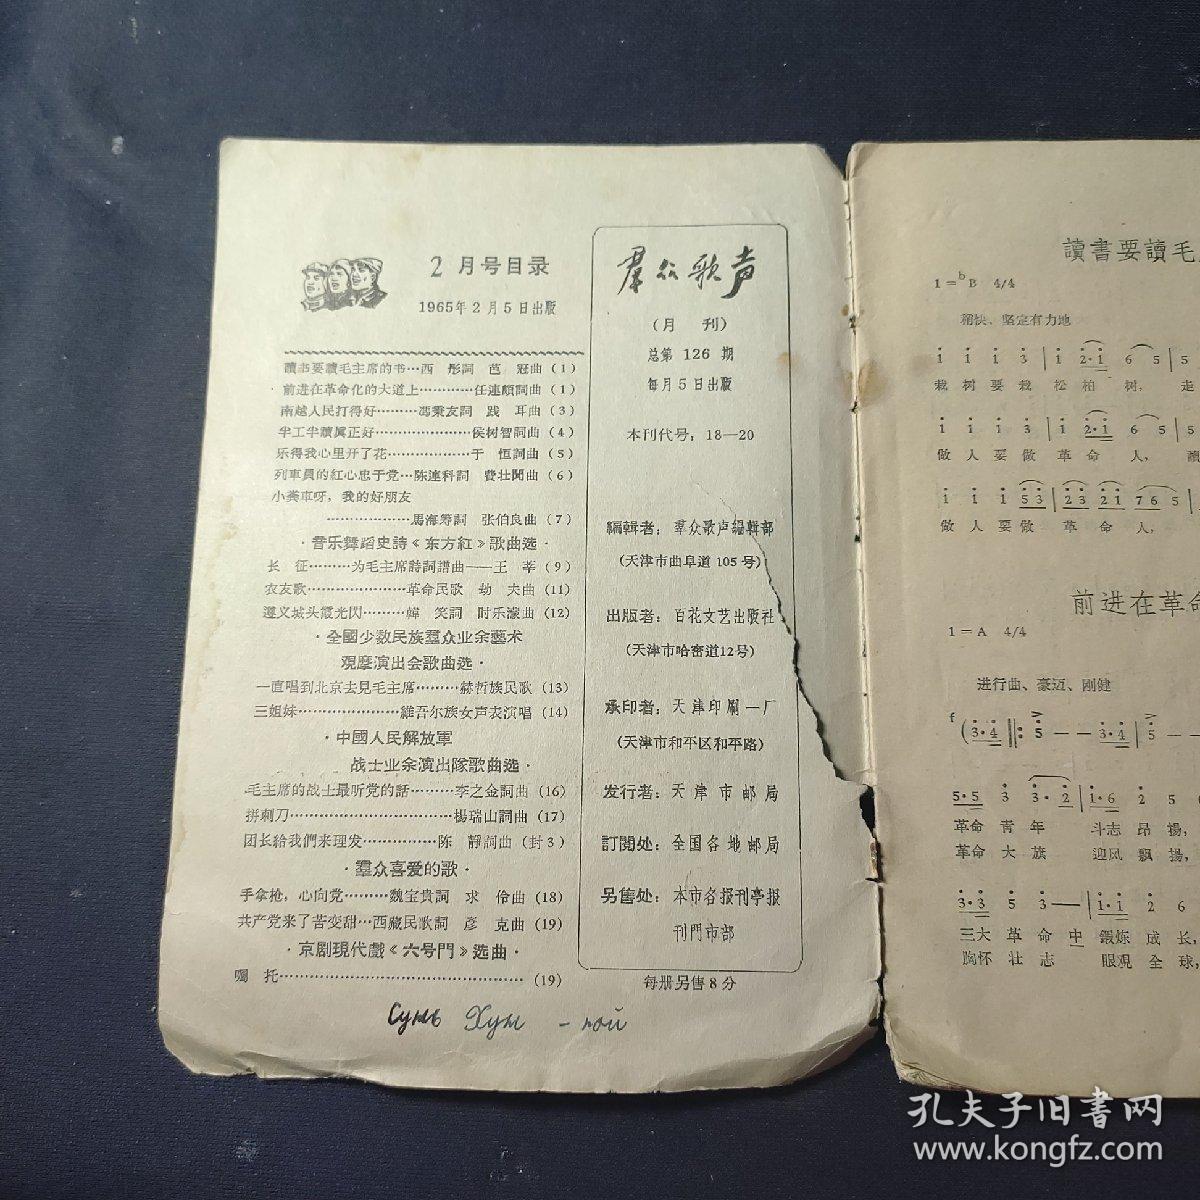 2月号目录
1965年2月5日出版
讀书要讀毛主席的书…西 彤詞 芭 冠曲(1)
前进在革命化的大道上…………任連頤詞曲(1)
南越人民打得好………馮秉友詞 践 耳曲(3)
半工半讀眞正好………………侯树智詞曲(4)
乐得我心里开了花………………于 恒詞曲(5)
列車員的紅心忠于党…陈連科詞 費壮聞曲(6)
小粪車呀，我的好朋友
………………馬海筹詞 张伯良曲(7)
·音乐舞蹈史詩《东方紅》歌曲选·
长 征…………为毛主席詩詞譜曲——王 莘(9)
农友歌…………………革命民歌 劫 夫曲(11)
遵义城头霞光閃………韓 笑詞 时乐濛曲(12)
·全國少数民族羣众业余藝术
观摩演出会歌曲选·
一直唱到北京去見毛主席………赫哲族民歌(13)
三姐妹…………………維吾尔族女声表演唱(14)
·中國人民解放軍
战士业余演出隊歌曲选·
毛主席的战士最听党的話………李之金詞曲(16)
拼刺刀……………………………楊瑞山詞曲(17)
团长給我們来理发……………陈 靜詞曲(封3)
·羣众喜爱的歌·
手拿枪，心向党………魏宝貴詞 求 伶曲(18)
共产党来了苦变甜…西藏民歌詞 彦 克曲(19)
·京剧現代戲《六号門》选曲·
囑 托………………………………………(19)
羣众歌声
(月 刊)
总第 126 期
每月5日出版
本刊代号：18—20
編輯者：羣众歌声編輯部
(天津市曲阜道 105 号)
出版者：百花文艺出版社
(天津市哈密道12号)
承印者：天津印刷一厂
(天津市和平区和平路)
发行者：天津市邮局
訂閱处：全国各地邮局
另售处：本市各报刊亭报
刊門市部
每册另售8分
讀書要讀毛
1=ᵇB 4/4
稍快、坚定有力地
i i i 3 | i 2·i 6 5 | 5
栽 树 要 栽 松 柏 树， 走
i i i 3 | i 2·i 6 5
做 人 要 做 革 命 人， 讀
i i i 53 | 23 21 76 5
做 人 要 做 革 命 人，
前进在革命
1=A 4/4
进行曲、豪迈、刚健
f (3·4 ‖: 5 — — 3·4 | 5 — —
5·5 3 3·2 | 1·6 2 5
革命 青 年 斗志 昂 揚，
革命 大 旗 迎风 飘 揚，
3·3 5 3— | 1·1 2 6
三大 革 命 中 鍛炼 成 长，
胸怀 壮 志 眼观 全 球，
孔夫子旧書网
www.kongfz.com